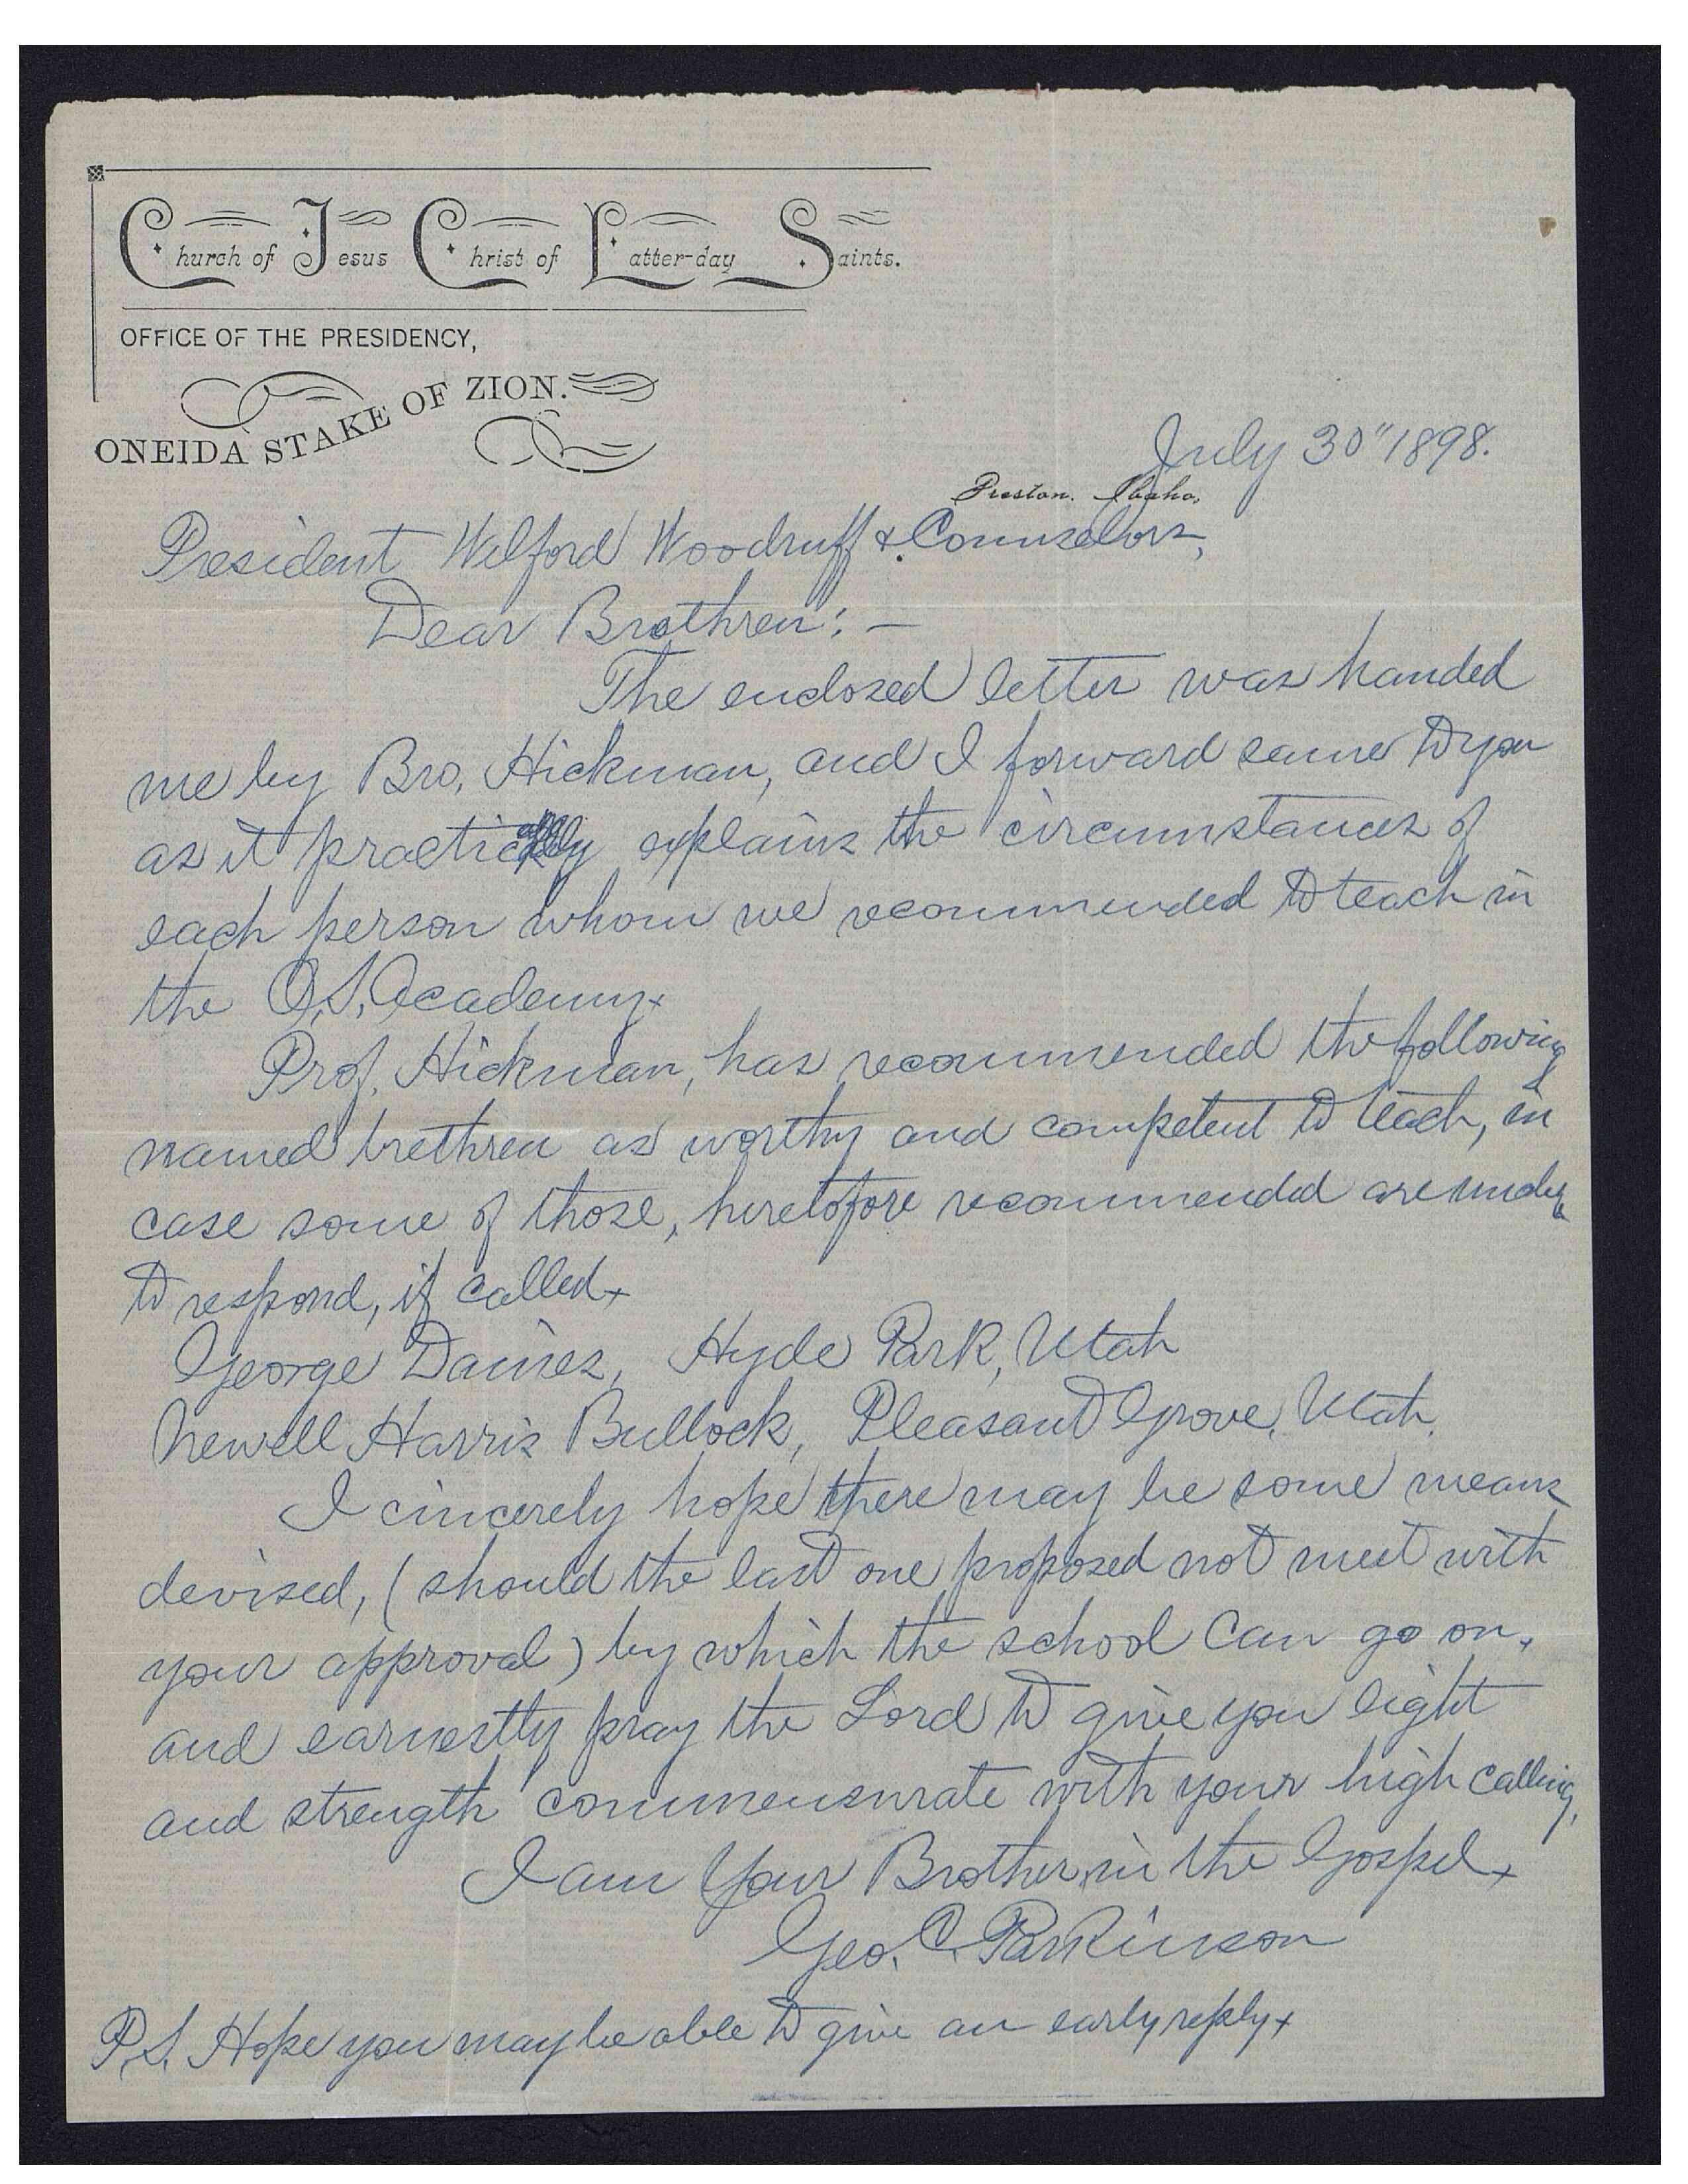 Church of Jesus Christ of Latter-day Saints.
OFFICE OF THE PRESIDENCY,
ONEIDA STAKE OF ZION.
July 30" 1898.
Preston. Idaho,
President Wilford Woodruff & Counselors,
Dear Brothren: —
The enclosed letter was handed
me by Bro. Hickman, and I forward same to you
as it practically explains the circumstances of
each person whom we recommended to teach in
the O.S. Academy.
Prof. Hickman, has recommended the following
named brethren as worthy and competent to teach, in
case some of those, heretofore recommended are
to respond, if called.
George Daines, Hyde Park, Utah
Newell Harris Bullock, Pleasant Grove, Utah.
I cincerely hope there may be some means
devised, (should the last one proposed not meet with
your approval) by which the school can go on,
and earnestly pray the Lord to give you light
and strength commensurate with your high calling,
I am Your Brother in the Gospel.
Geo. C. Parkinson
P.S. Hope you may be able to give an early reply.